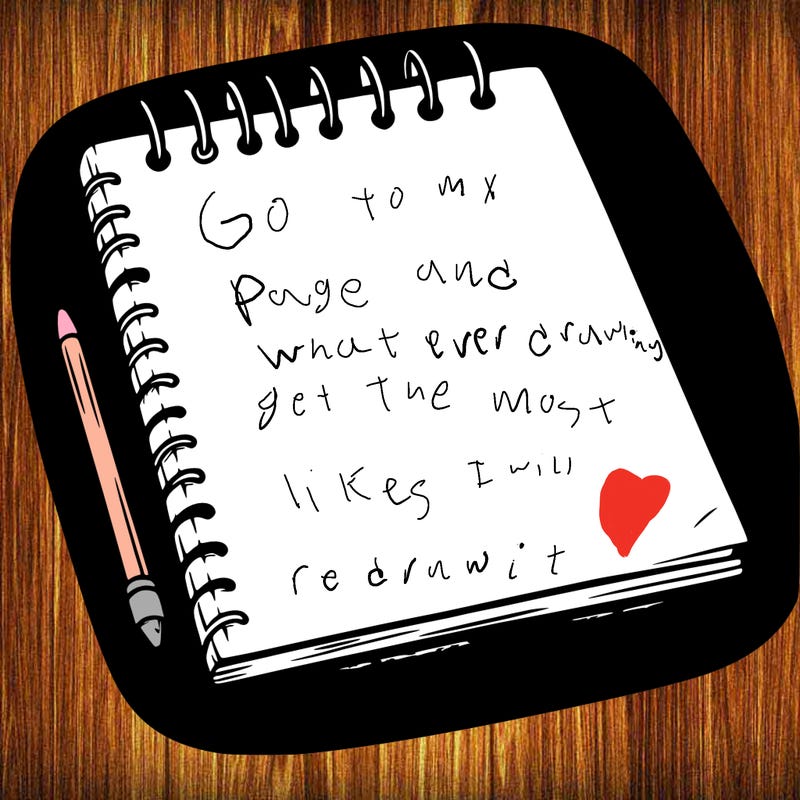 Go to my
page and
what ever drawling
get the most
likes I will
redrawit